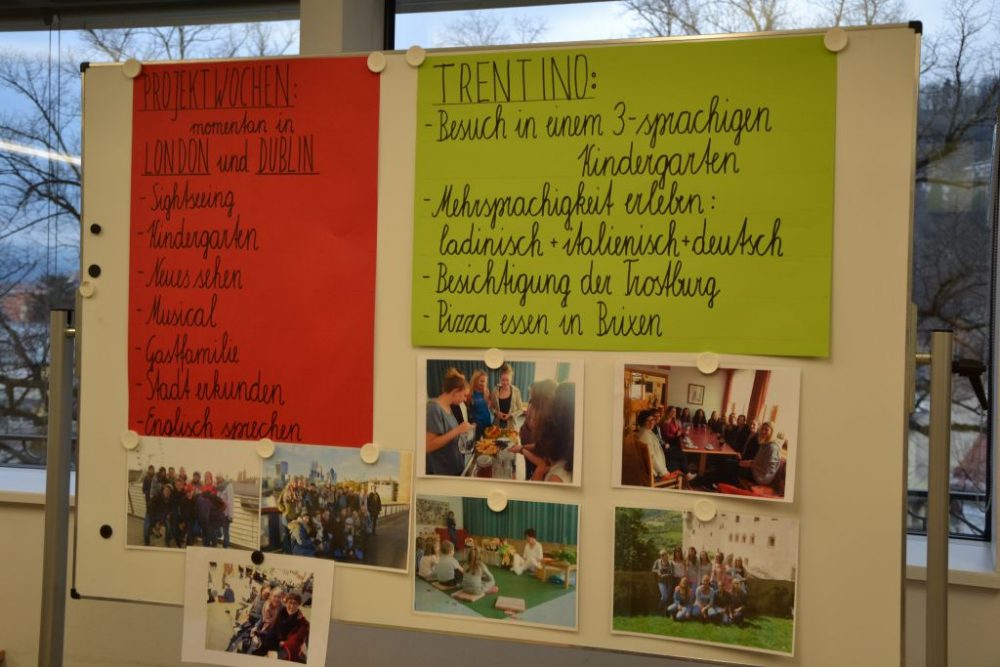 PROJEKTWOCHEN:
momentan in
LONDON und DUBLIN
- Sightseeing
- Kindergarten
- Neues sehen
- Musical
- Gastfamilie
- Stadt erkunden
- Englisch sprechen
TRENTINO:
- Besuch in einem 3-sprachigen
Kindergarten
- Mehrsprachigkeit erleben:
ladinisch + italienisch + deutsch
- Besichtigung der Trostburg
- Pizza essen in Brixen